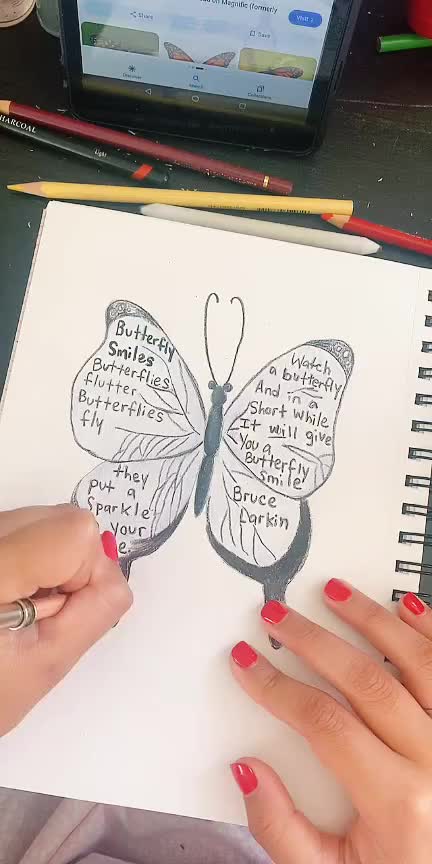 on Magnific (formerly
Visit
Share
Save
Discover
Search
Collections
CHARCOAL
Light
Butterfly
Smiles
Butterflies
flutter
Butterflies
fly
they
put a
Sparkle
your
e.
Watch
a butterfly
And in a
Short while
It will give
You a
Butterfly
Smile
Bruce
Larkin